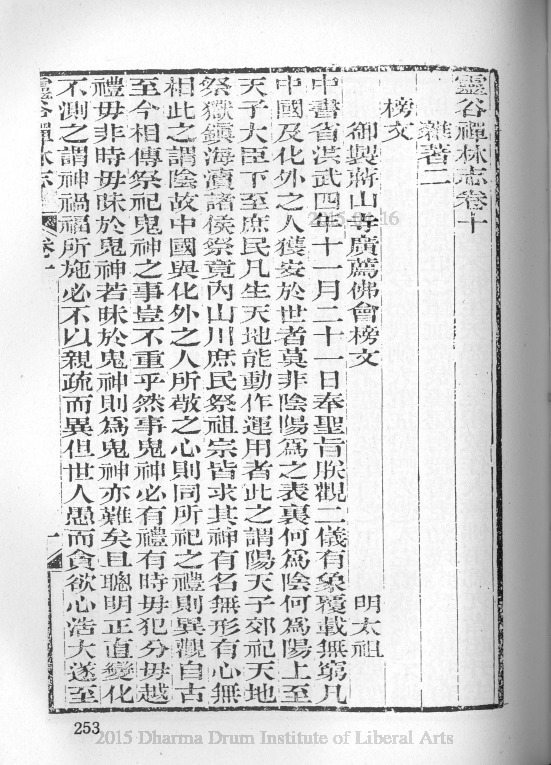 靈谷禪林志卷十
雜著二
榜文
御製蔣山寺廣薦佛會榜文
明太祖
中書省洪武四年十一月二十一日奉聖旨朕觀二儀有象覆載無窮凡
中國及化外之人獲安於世者莫非陰陽爲之表裏何爲陰何爲陽上至
天子大臣下至庶民凡生天地能動作運用者此之謂陽天子郊祀天地
祭嶽鎮海瀆諸侯祭竟內山川庶民祭祖宗皆求其神有名無形有心無
相此之謂陰故中國與化外之人所敬之心則同所祀之禮則異觀自古
至今相傳祭祀鬼神之事豈不重乎然事鬼神必有禮有時毋犯分毋越
禮毋非時毋昧於鬼神若昧於鬼神則爲鬼神亦難矣且聰明正直變化
不測之謂神禍福所施必不以親疏而異但世人愚而貪欲心浩大遂至
靈谷禪林志
卷十
一
253
2015 Dharma Drum Institute of Liberal Arts